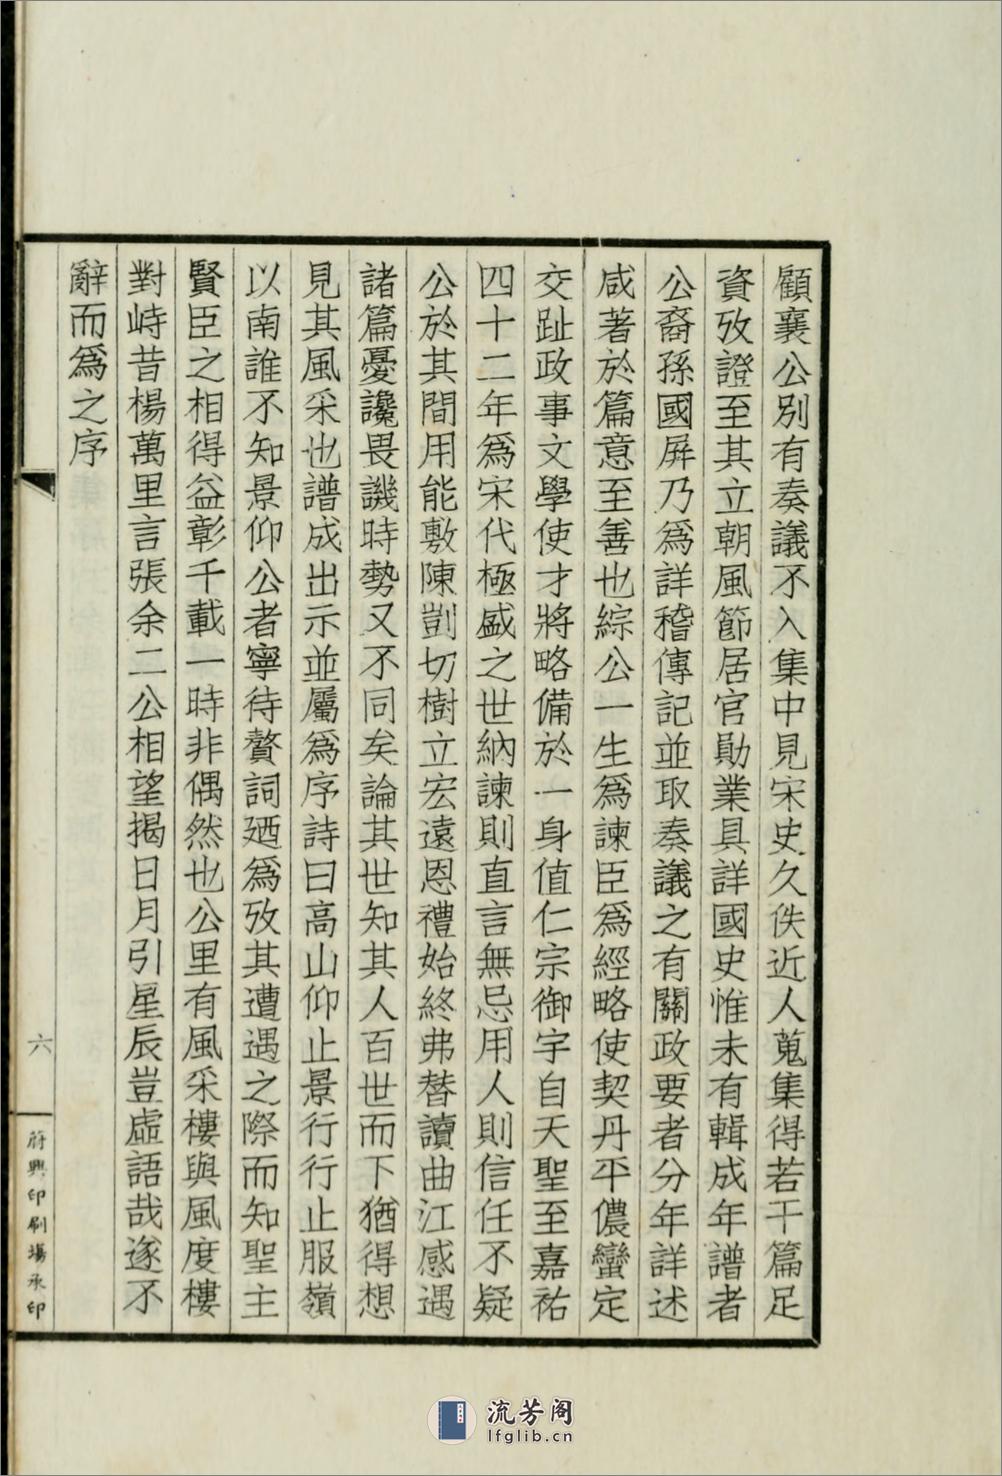 顧襄公別有奏議不入集中見宋史久佚近人蒐集得若干篇足
資攷證至其立朝風節居官勛業具詳國史惟未有輯成年譜者
公裔孫國屏乃爲詳稽傳記並取奏議之有關政要者分年詳述
咸著於篇意至善也綜公一生爲諫臣爲經略使契丹平儂蠻定
交趾政事文學使才將略備於一身值仁宗御宇自天聖至嘉祐
四十二年爲宋代極盛之世納諫則直言無忌用人則信任不疑
公於其間用能敷陳剴切樹立宏遠恩禮始終弗替讀曲江感遇
諸篇憂讒畏譏時勢又不同矣論其世知其人百世而下猶得想
見其風采也譜成出示並屬爲序詩曰高山仰止景行行止服嶺
以南誰不知景仰公者寧待贅詞廼爲攷其遭遇之際而知聖主
賢臣之相得益彰千載一時非偶然也公里有風采樓與風度樓
對峙昔楊萬里言張余二公相望揭日月引星辰豈虛語哉遂不
辭而爲之序
六
蔚興印刷場承印
流芳阁
lfglib.cn